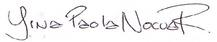 Yina Paola Nocua R.